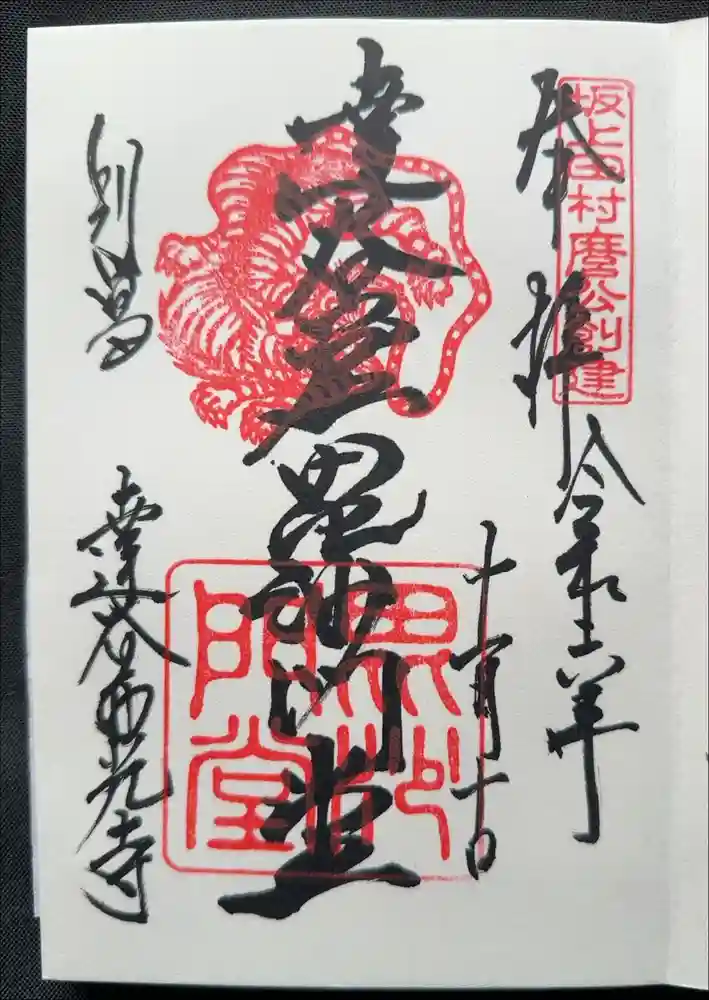 奉拝
坂上田村麿公創建
令和六年
十一月十日
達谷窟毘沙門堂
毘沙門堂
別當
達谷西光寺